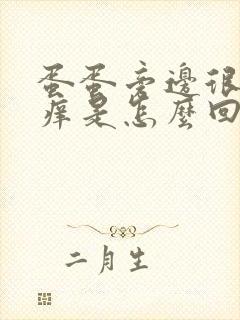 蛋蛋旁邊很
癢是怎麼回
二月生